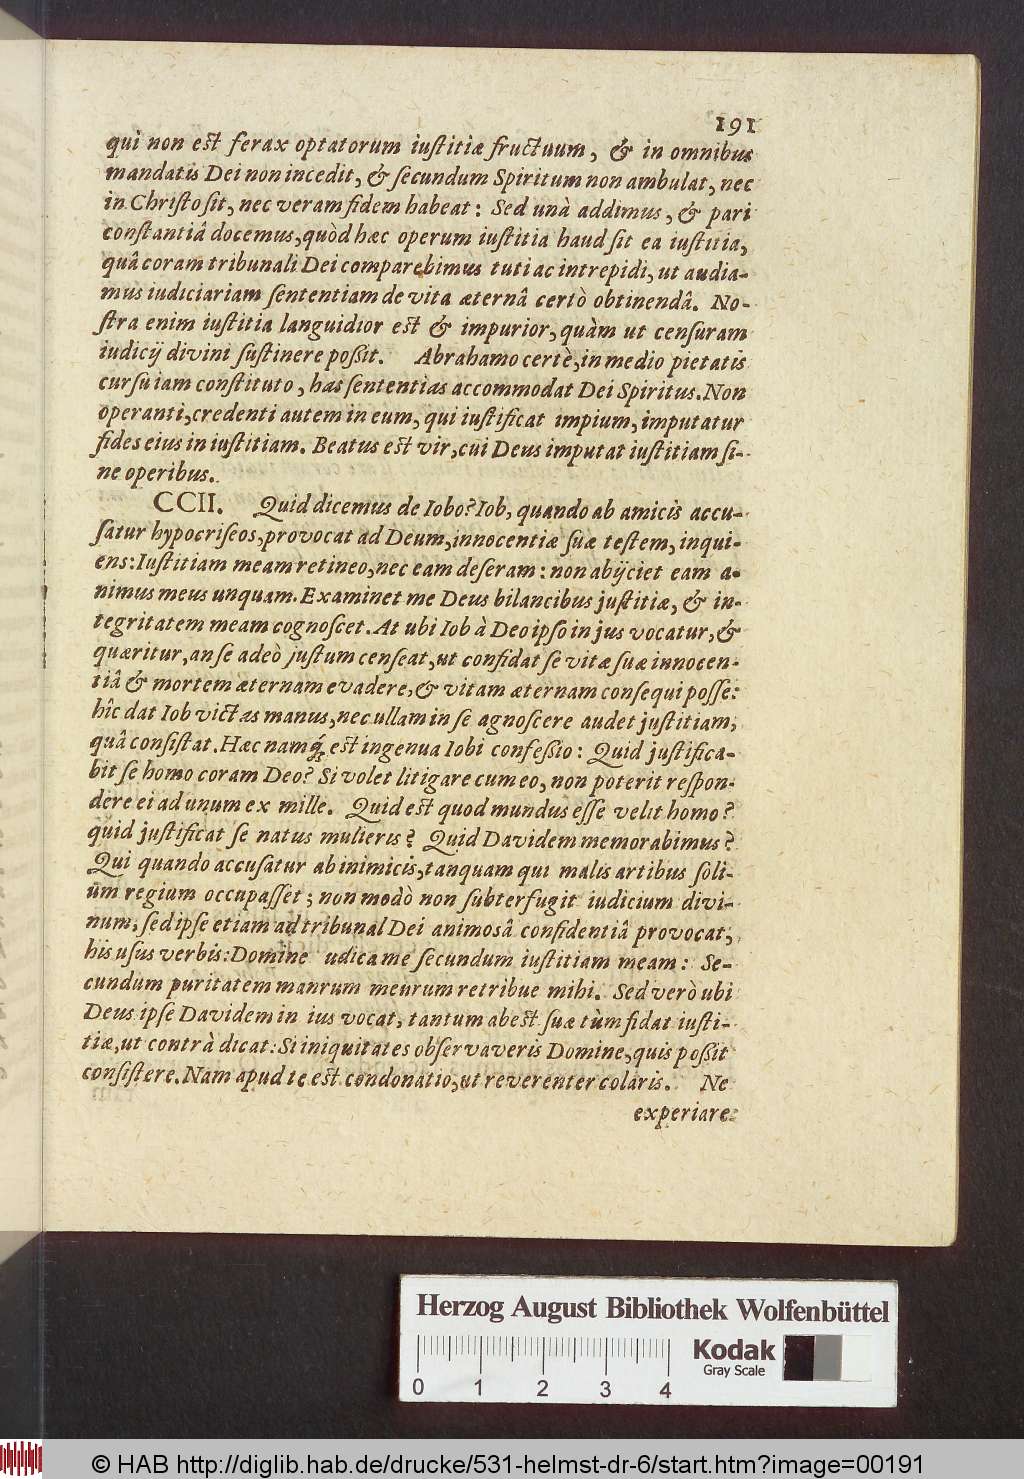 191
qui non est ferax optatorum iustitiæ fructuum, & in omnibus
mandatis Dei non incedit, & secundum Spiritum non ambulat, nec
in Christo sit, nec veram fidem habeat: Sed unà addimus, & pari
constantiâ docemus, quòd hæc operum iustitia haud sit ea iustitia,
quâ coram tribunali Dei comparebimus tuti ac intrepidi, ut audia-
mus iudiciariam sententiam de vita æternâ certò obtinendâ. No-
stra enim iustitia languidior est & impurior, quàm ut censuram
iudicij divini sustinere poßit. Abrahamo certè, in medio pietatis
cursu iam constituto, has sententias accommodat Dei Spiritus. Non
operanti, credenti autem in eum, qui iustificat impium, imputatur
fides eius in iustitiam. Beatus est vir, cui Deus imputat iustitiam si-
ne operibus.
CCII. Quid dicemus de Iobo? Iob, quando ab amicis accu-
satur hypocriseos, provocat ad Deum, innocentiæ suæ testem, inqui-
ens: Iustitiam meam retineo, nec eam deseram: non abijciet eam a-
nimus meus unquam. Examinet me Deus bilancibus justitiæ, & in-
tegritatem meam cognoscet. At ubi Iob à Deo ipso in jus vocatur, &
quæritur, an se adeò justum censeat, ut confidat se vitæ suæ innocen-
tiâ & mortem æternam evadere, & vitam æternam consequi posse:
hîc dat Iob victas manus, nec ullam in se agnoscere audet justitiam,
quâ consistat. Hæc namq́; est ingenua Iobi confeßio: Quid justifica-
bit se homo coram Deo? Si volet litigare cum eo, non poterit respon-
dere ei ad unum ex mille. Quid est quod mundus esse velit homo?
quid justificat se natus mulieris? Quid Davidem memorabimus?
Qui quando accusatur ab inimicis, tanquam qui malis artibus soli-
um regium occupasset; non modò non subterfugit iudicium divi-
num, sed ipse etiam ad tribunal Dei animosâ confidentiâ provocat,
his usus verbis: Domine udica me secundum iustitiam meam: Se-
cundum puritatem manrum meurum retribue mihi. Sed verò ubi
Deus ipse Davidem in ius vocat, tantum abest suæ tùm fidat iusti-
tiæ, ut contrà dicat: Si iniquitates observaveris Domine, quis poßit
consistere. Nam apud te est condonatio, ut reverenter colaris. Ne
experiare
Herzog August Bibliothek Wolfenbüttel
Kodak
Gray Scale
0 1 2 3 4
© HAB http://diglib.hab.de/drucke/531-helmst-dr-6/start.htm?image=00191